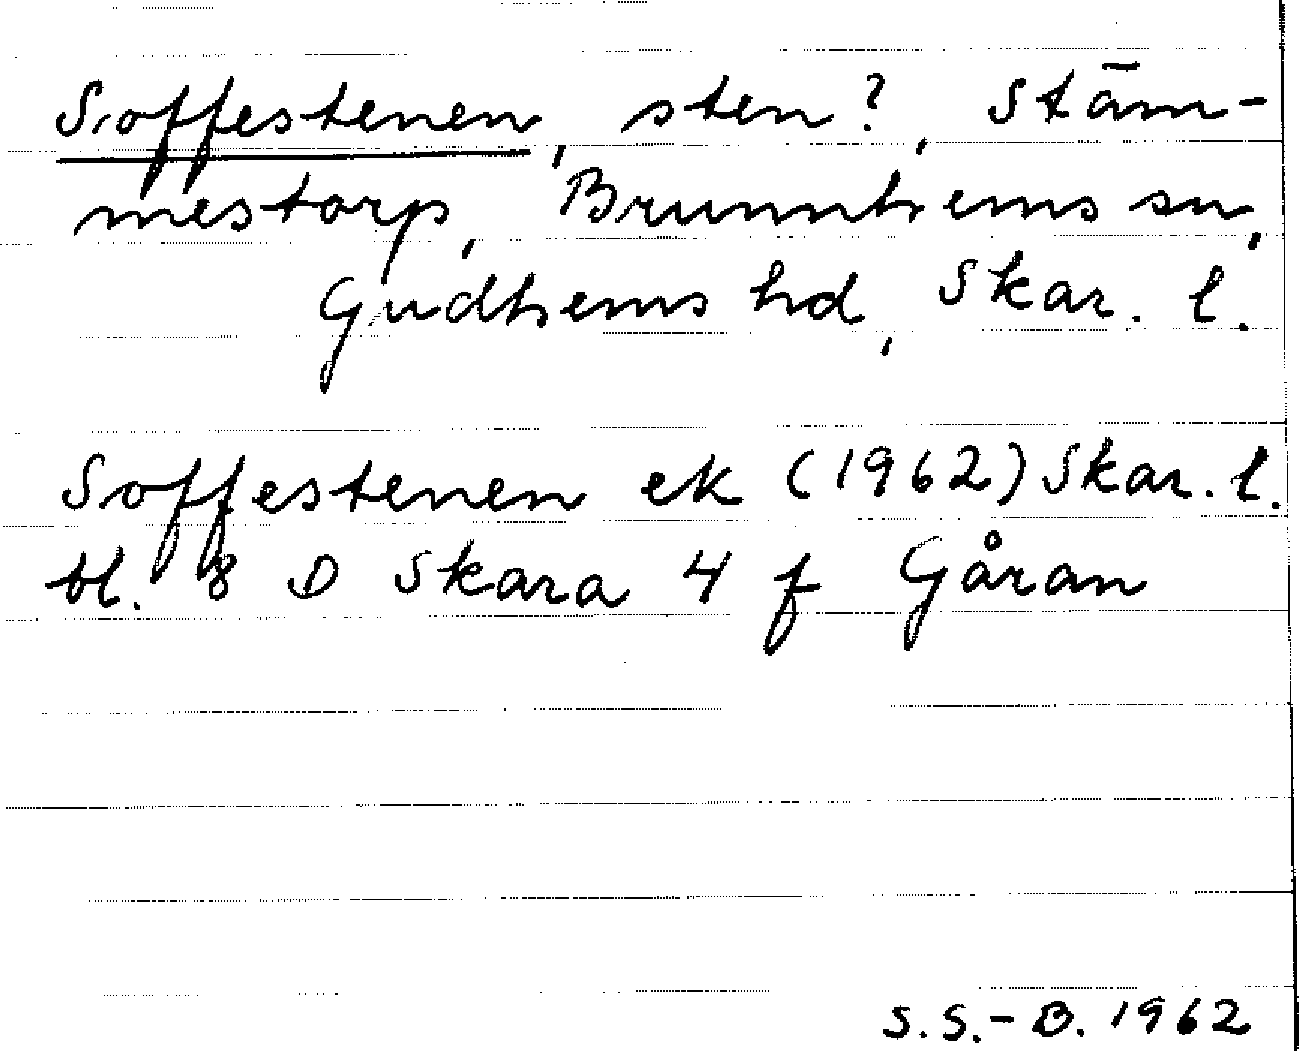 Soffestenen, sten?, Stäm-
mestorp, Brunnhems sn,
Gudhems hd, Skar. l.
Soffestenen ek (1962) Skar. l.
bl. 8 D Skara 4 f Gåran
S.S.-B. 1962